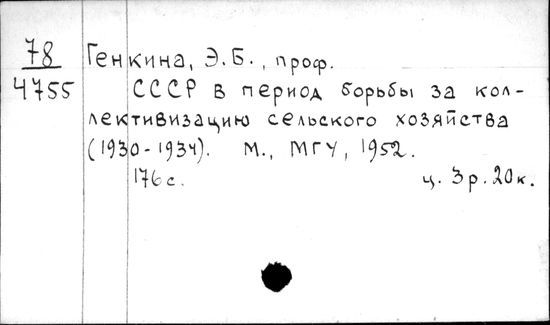 78
4755
Генкина, Э.Б., проф.
СССР в период борьбы за кол-
лективизацию сельского хозяйства
(1930-1934). М., МГУ, 1952.
176с. ц. 3р.20к.